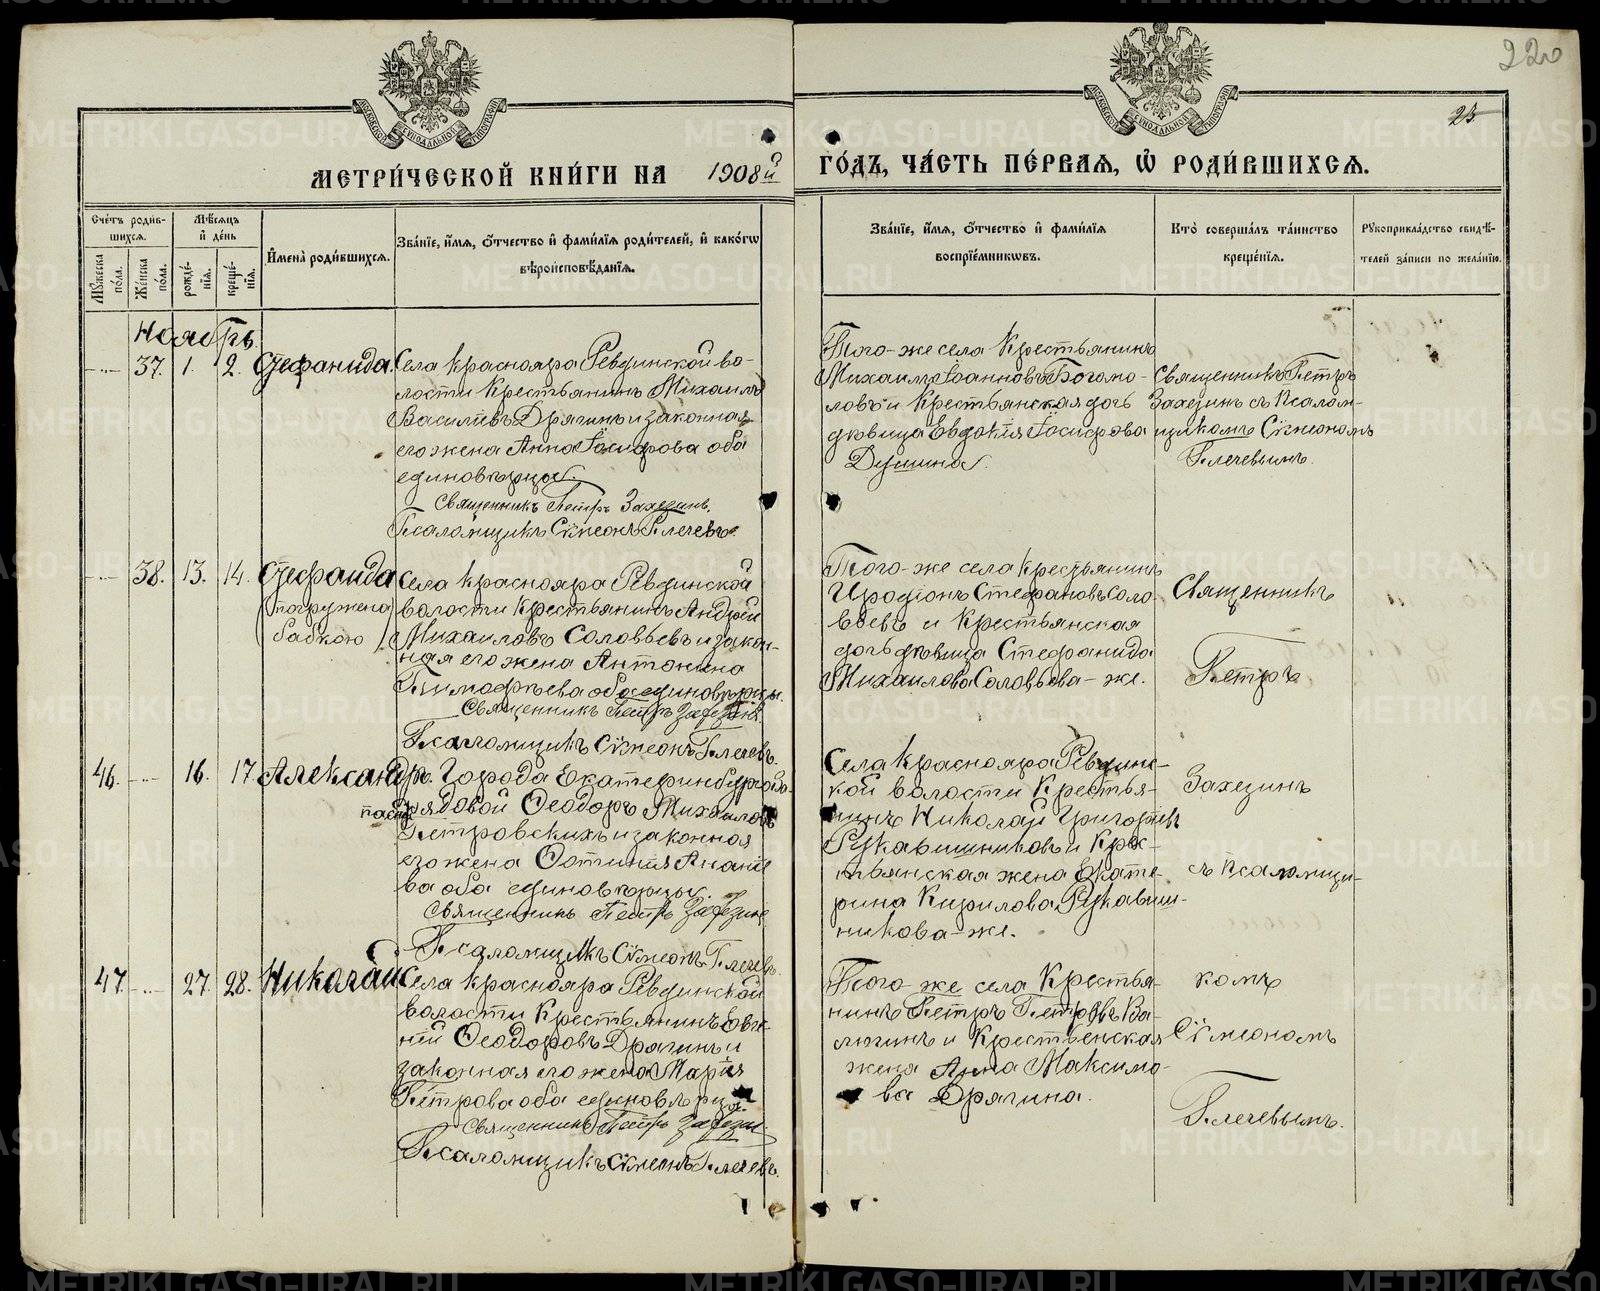 220
25
МОСКОВСКОЙ СѴНОДАЛЬНОЙ ТИПОГРАФІИ
МОСКОВСКОЙ СѴНОДАЛЬНОЙ ТИПОГРАФІИ
МЕТРИ́ЧЕСКОЙ КНИ́ГИ НА 1908й ГО́ДЪ, ЧА́СТЬ ПЕ́РВАЯ, Ѡ҆ РОДИ́ВШИХСЯ.
Сче́тъ роди́в-
шихся.
Мꙋ́жеска по́ла.
Же́нска по́ла.
Мѣ́сяцъ
и҆ де́нь
рожде́нїя.
креще́нїя.
И҆мена̀ роди́вшихся.
Зва́нїе, и҆́мя, ѻ҆́тчество и҆ фами́лїя роди́телей, и҆ како́гѡ
вѣроисповѣ́данїя.
Зва́нїе, и҆́мя, ѻ҆́тчество и҆ фами́лїя
воспрїе́мникѡвъ.
Кто̀ соверша́лъ та́инство
креще́нїя.
Рꙋкоприкла́дство свидѣ́-
телей за́писи по жела́нїю.
Ноябрь
37. 1. 2. Стефанида.
Села Краснояра Ревдинской во-
лости Крестьянинъ Михаилъ
Василіевъ Дрягинъ и законная
его жена Анна Іосифова оба
единовѣрцы.
Священникъ Петръ Захезинъ.
Псаломщикъ Сѵмеонъ Плечевъ.
Того-же села Крестьянинъ
Михаилъ Іоанновъ Богомо-
ловъ и Крестьянская дочь
дѣвица Евдокія Іосифова
Душина.
Священникъ Петръ
Захезинъ съ Псалом-
щикомъ Сѵмеономъ
Плечевымъ.
38. 13. 14. Стефанида
(погружена
бабкою)
Села Краснояра Ревдинской
волости Крестьянинъ Андрей
Михаиловъ Соловьевъ и закон-
ная его жена Антонина
Тимофѣева оба единовѣрцы.
Священникъ Петръ Захезинъ.
Псаломщикъ Сѵмеонъ Плечевъ.
Того-же села Крестьянинъ
Иродіонъ Стефановъ Соло-
вьевъ и Крестьянская
дочь дѣвица Стефанида
Михаилова Соловьева-же.
Священникъ
Петръ
46. 16. 17. Александръ.
Города Екатеринбурга за-
пасный рядовой Ѳеодоръ Михаиловъ
Петровскихъ и законная
его жена Фотинія Ананіе
ва оба единовѣрцы.
Священникъ Петръ Захезинъ
Псаломщикъ Сѵмеонъ Плечевъ.
Села Краснояра Ревдинс-
кой волости Крестья-
нинъ Николай Григорьевъ
Рукавишниковъ и Крес-
тьянская жена Екате-
рина Кирилова Рукавиш-
никова-же.
Захезинъ
съ Псаломщи-
47. 27. 28. Николай
Села Краснояра Ревдинской
волости Крестьянинъ Евге-
ній Ѳеодоровъ Дрягинъ и
законная его жена Марія
Петрова оба единовѣрцы.
Священникъ Петръ Захезинъ.
Псаломщикъ Сѵмеонъ Плечевъ.
Того-же села Крестья-
нинъ Петръ Петровъ Ва-
люгинъ и Крестьенская
жена Анна Максимо-
ва Дрягина.
комъ
Сѵмеономъ
Плечевымъ.
METRIKI.GASO-URAL.RU